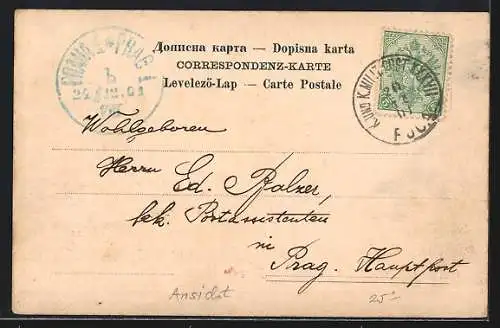 Дописна карта — Dopisna karta
CORRESPONDENZ-KARTE
Levelező-Lap — Carte Postale
PRAG 1 PRAHA 1
b
K. UND K. MILIT. POST
FOČA
Wohlgeboren
Herrn Ed. Pfalzer,
kk. Postassistenten
in
Prag. Hauptpost
Ansicht
25.-